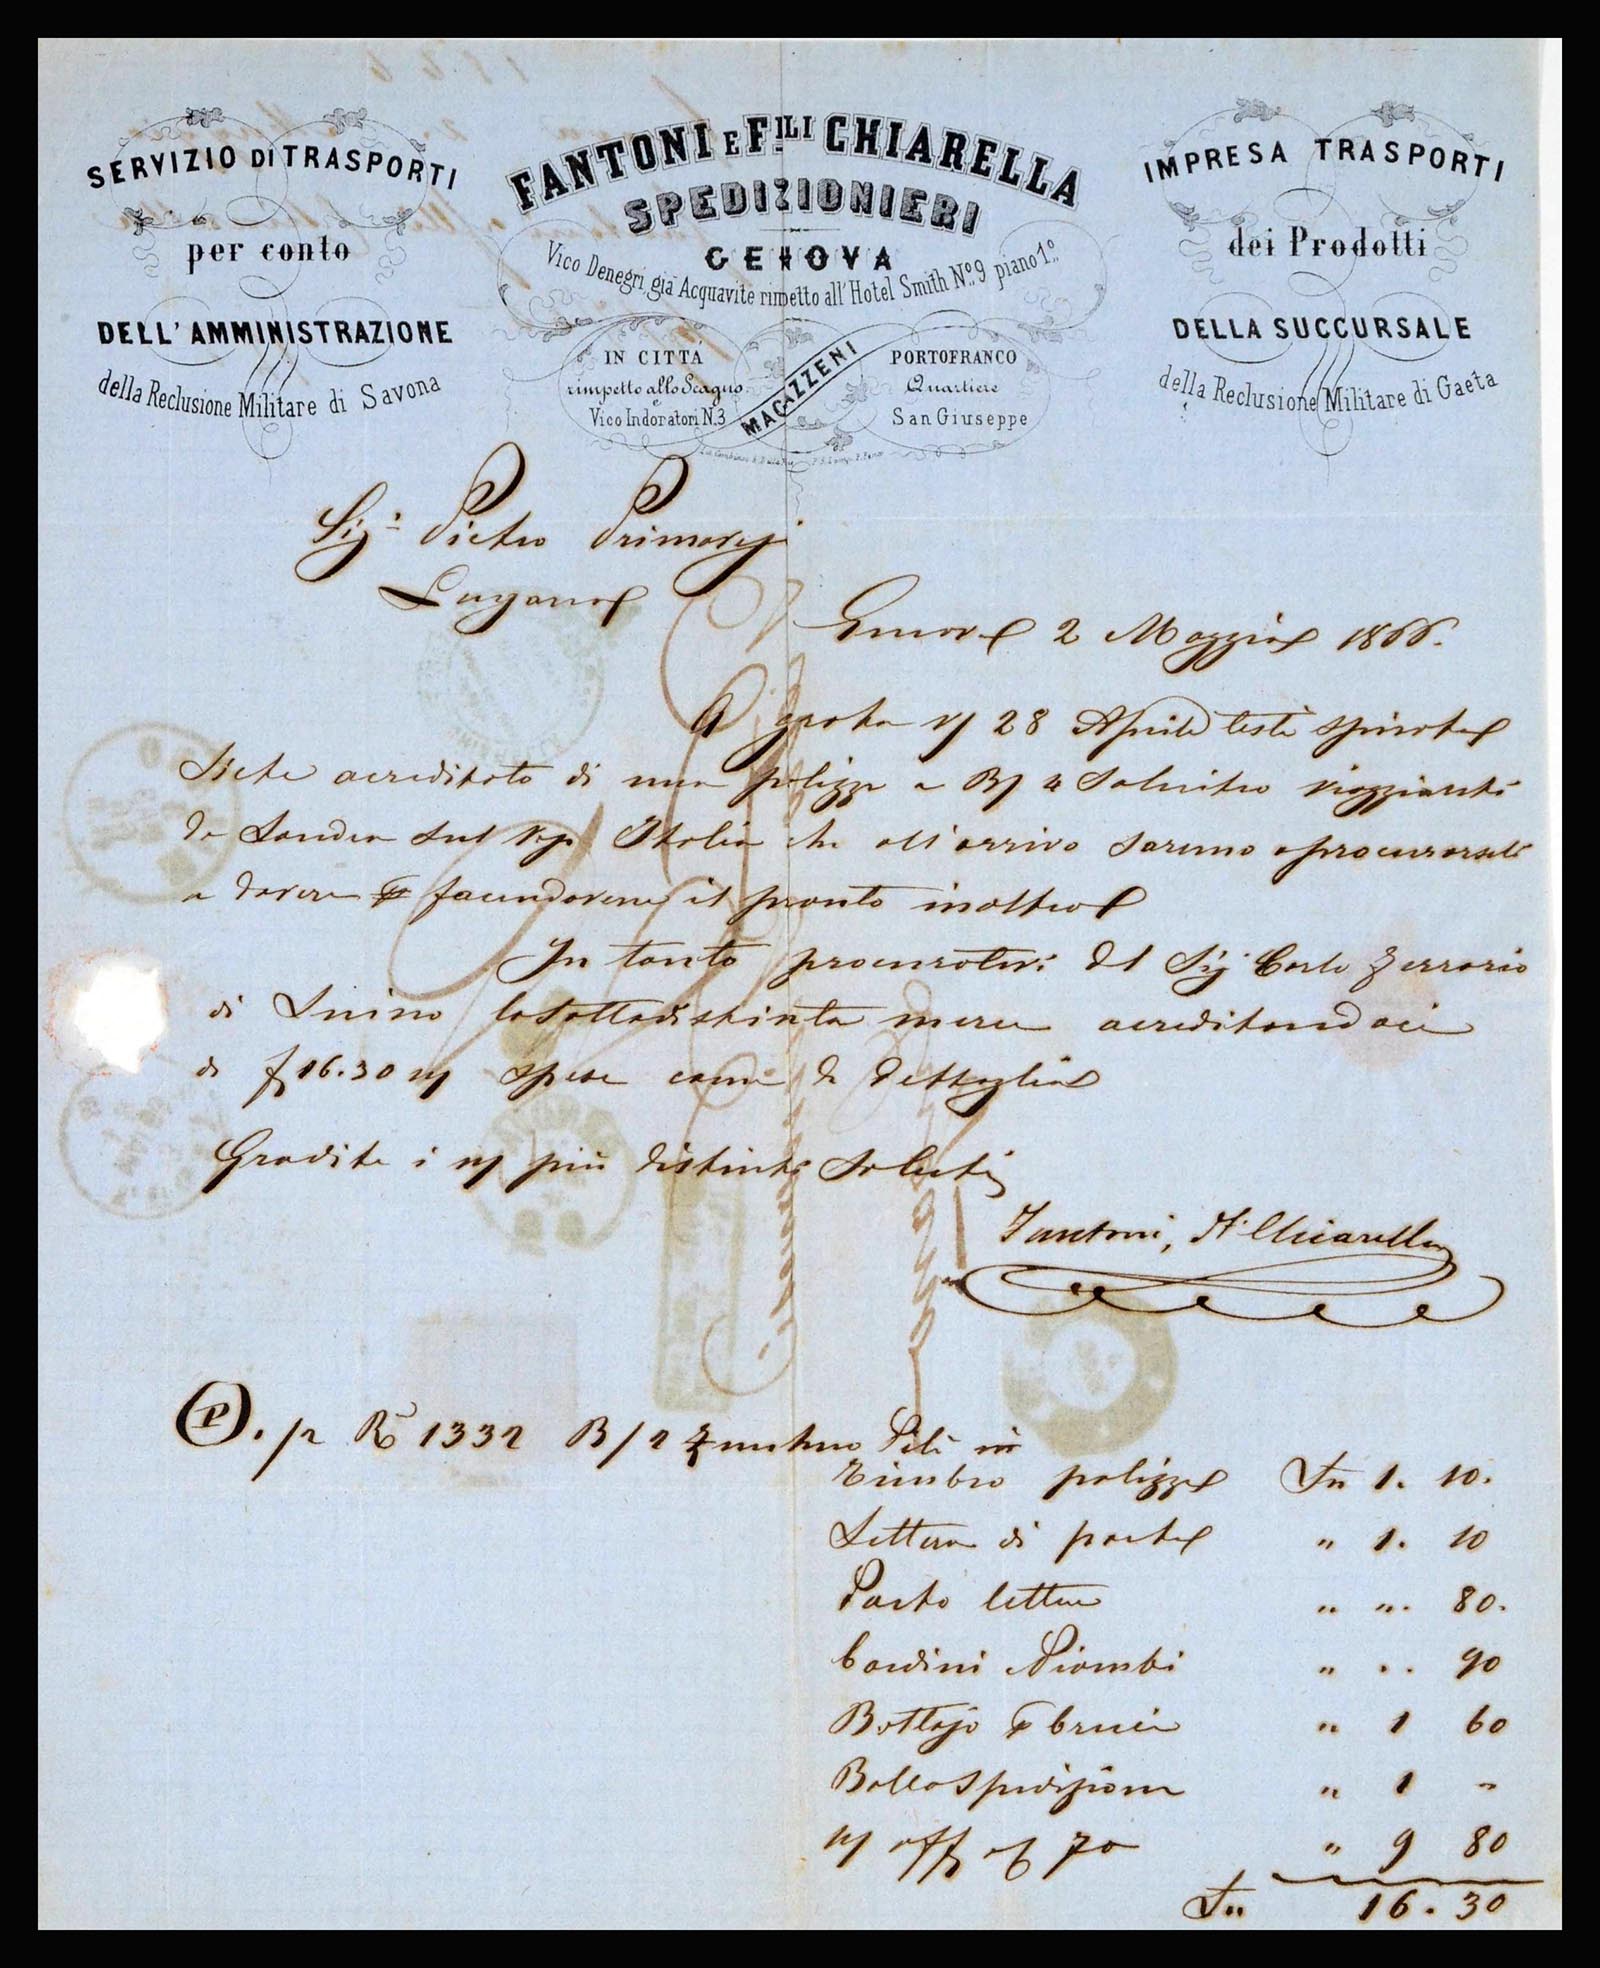 SERVIZIO DI TRASPORTI
per conto
DELL'AMMINISTRAZIONE
della Reclusione Militare di Savona
FANTONI E F.LLI CHIARELLA
SPEDIZIONIERI
GENOVA
Vico Denegri, già Acquavite rimpetto all'Hotel Smith N.º 9 piano 1.º
IN CITTÀ
rimpetto allo Scagno
e
Vico Indoratori N.3
MAGAZZENI
PORTOFRANCO
Quartiere
San Giuseppe
IMPRESA TRASPORTI
dei Prodotti
DELLA SUCCURSALE
della Reclusione Militare di Gaeta
Sig.r Pietro
Lugano
Genova 2 Maggio 1866.
A grata v/ 28 Aprile testè spirato
Siete acreditato di una polizza a B/ 4 Salnitro viaggianti
da Londra sul Vap Italia che all'arrivo saremo
a dovere facendovene il pronto inoltro
In tanto procuratevi dal Sig Carlo Ferrario
di Luino la sottodistinta merce acreditandoci
di f 16.30 n/ spese come da dettaglio
Gradite i n/ più distinti Saluti
Fantoni, F.i Chiarella
P. /2 R 1332 B/2 Pelli in
Timbro polizza Fn 1. 10.
Lettera di porto " 1. 10
Porto lettere " ". 80.
Cordini Piombi " .. 90
Bottajo " 1 60
Bolla Spedizione " 1 "
n/ 70 " 9 80
Fn 16.30